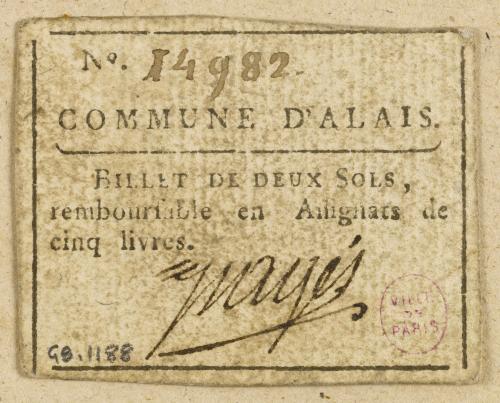 Nº. 14982.
COMMUNE D'ALAIS.
BILLET DE DEUX SOLS,
remboursable en Assignats de
cinq livres.
VILLE
DE
PARIS
G9.1188